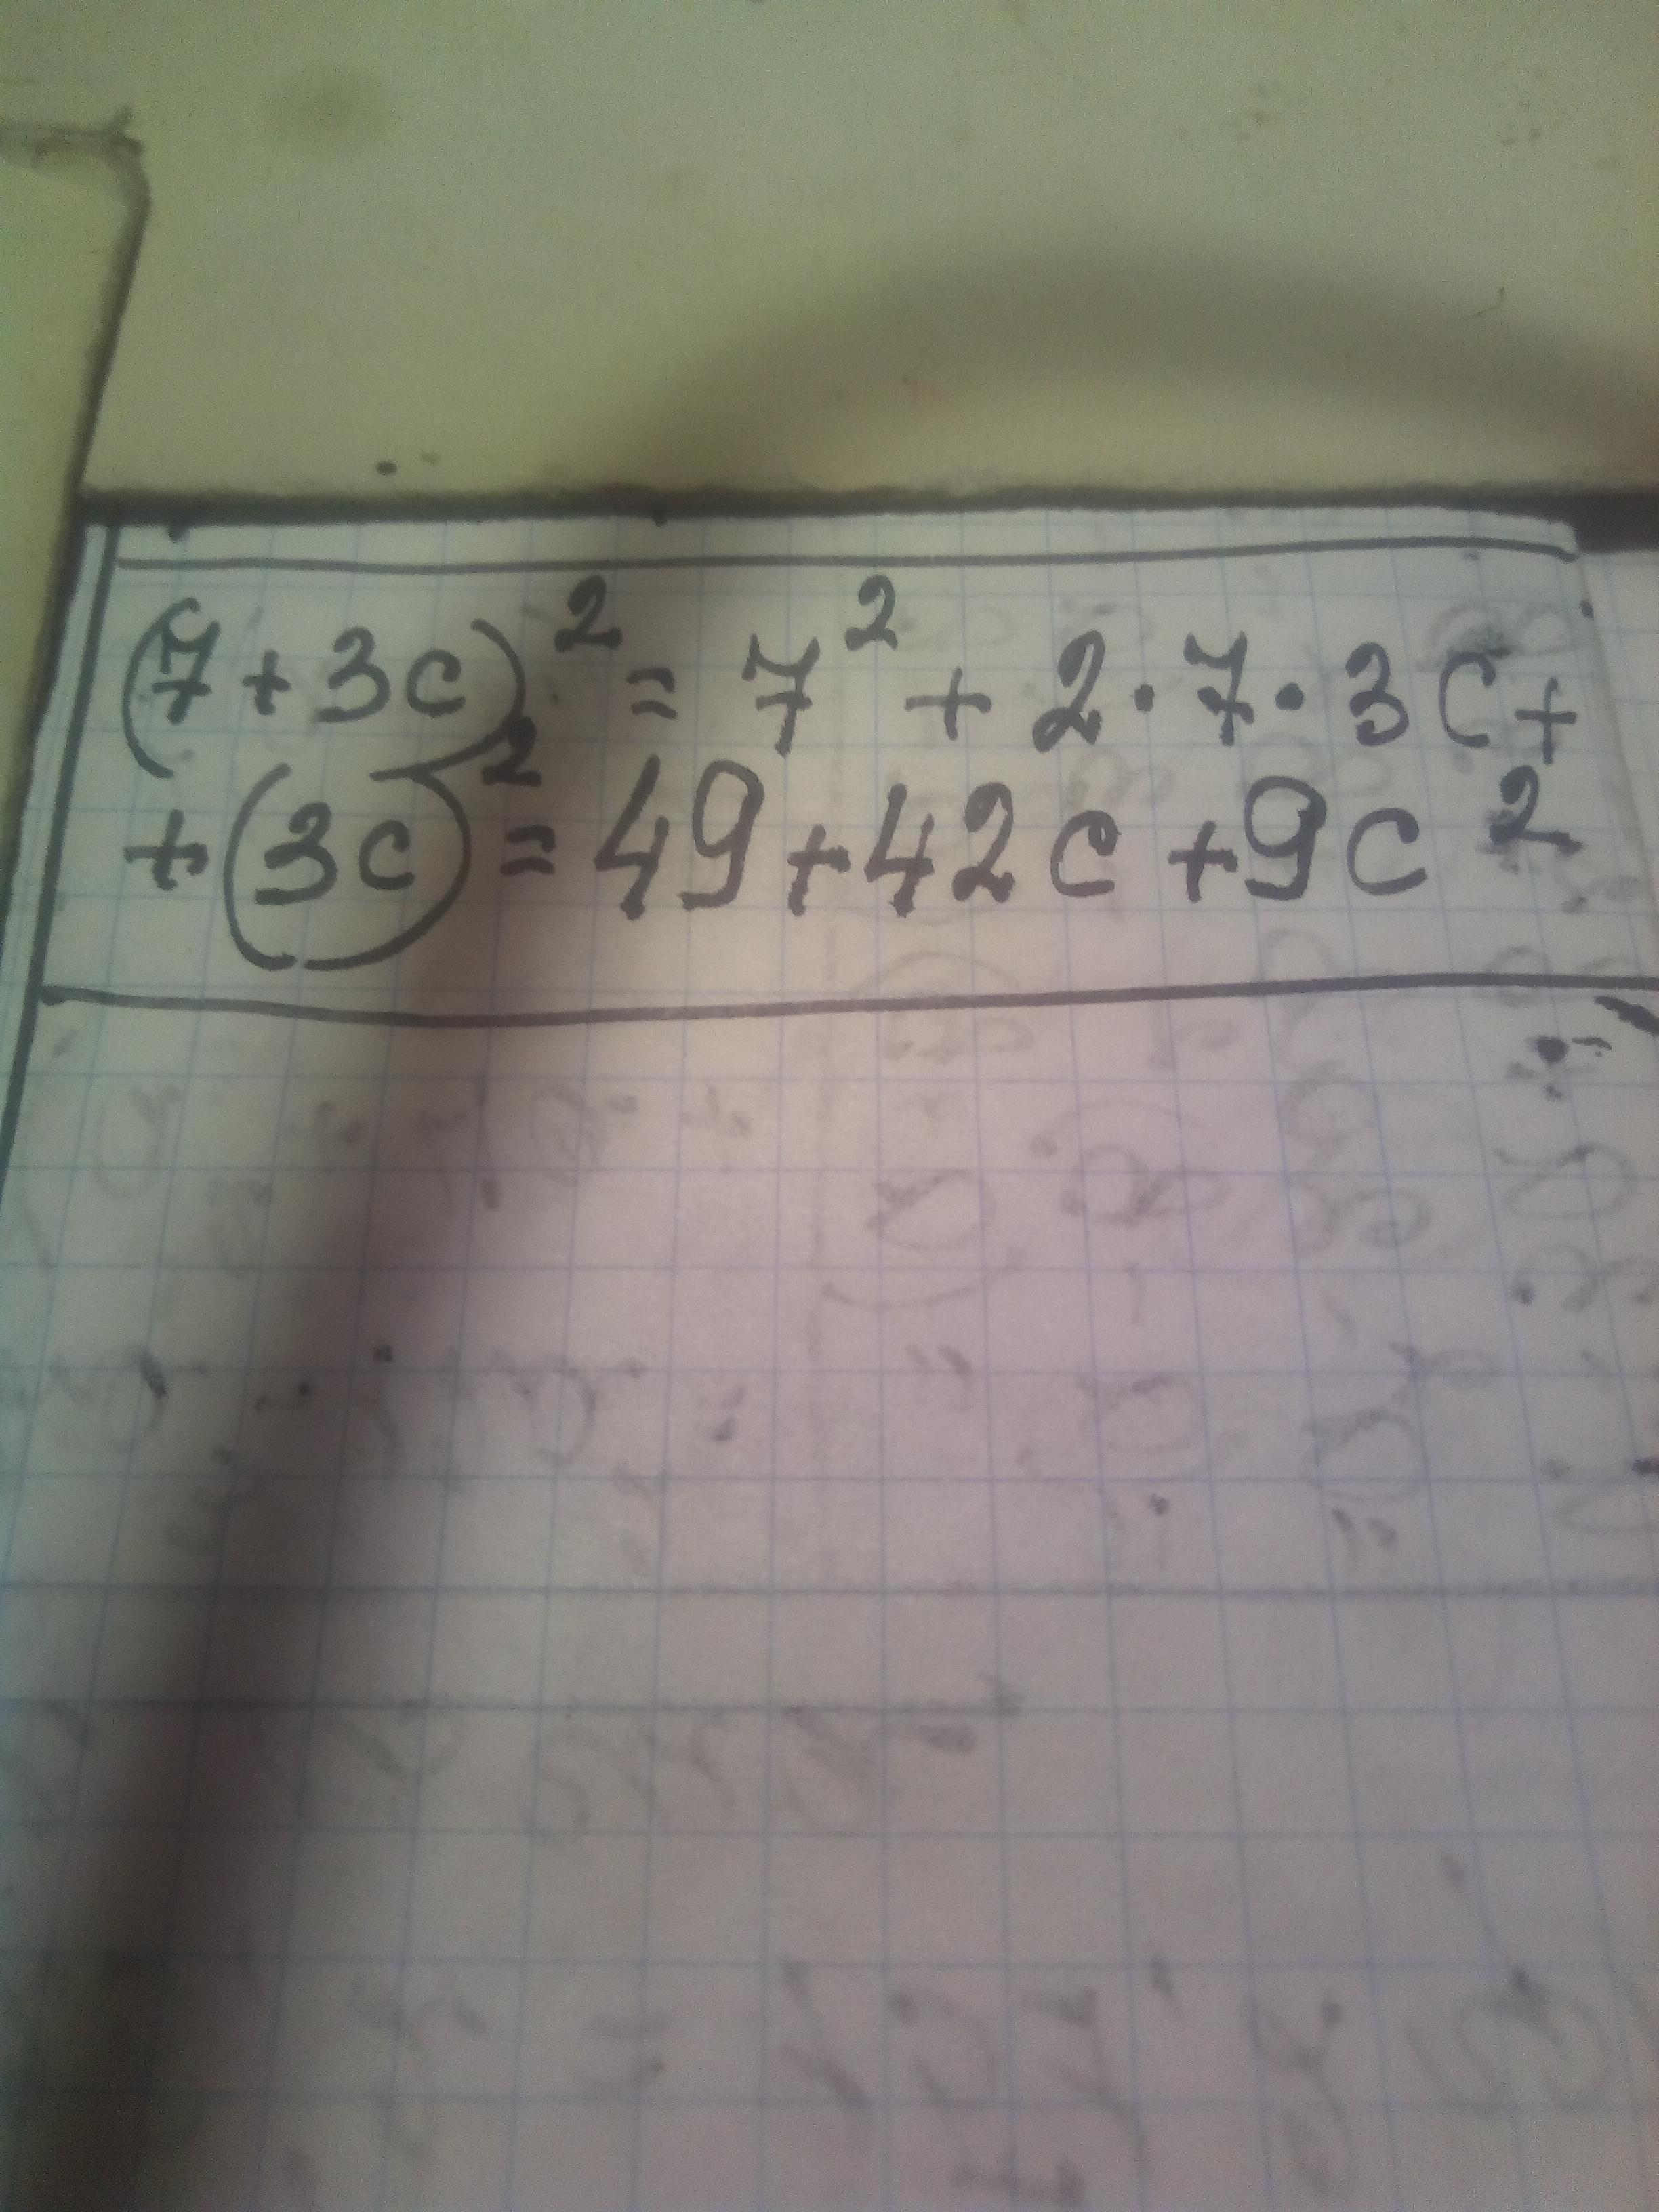 (7+3c)² = 7² + 2·7·3c+
+(3c)² = 49+42c+9c²